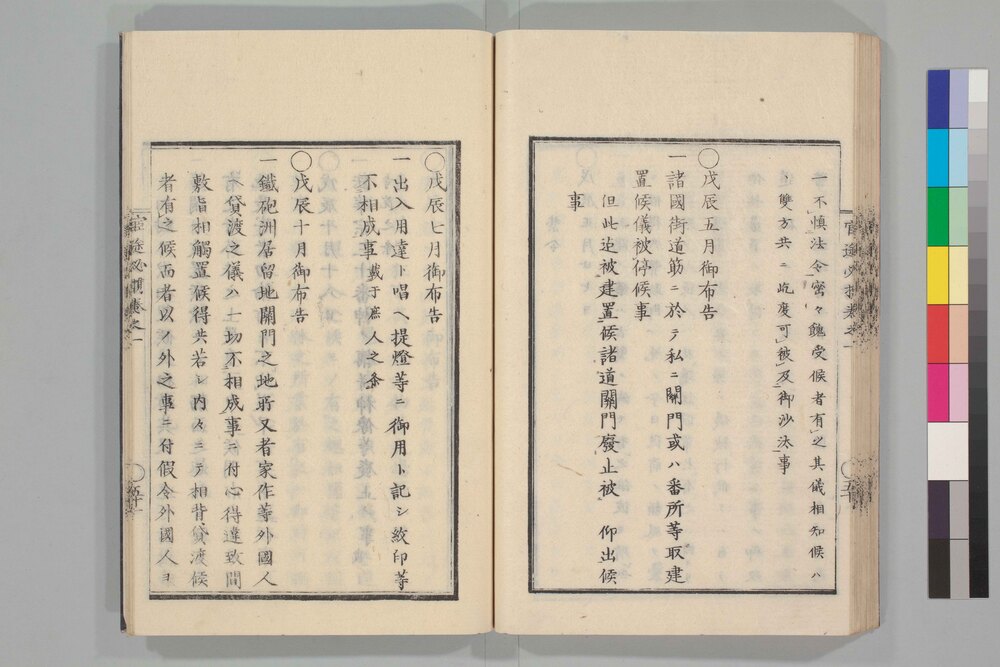 一不慎法令密々餽受候者有之其儀相知候ハ
ヽ雙方共ニ屹度可被及御沙汰事
〇戊辰五月御布告
一諸國街道筋ニ於テ私ニ關門或ハ番所等取建
置候儀被停候事
但此迄被建置候諸道關門廢止被 仰出候
事
〇戊辰七月御布告
一出入用達ト唱ヘ提燈等ニ御用ト記シ絞印等
不相成事載于庶人之条
〇戊辰十月御布告
一鐵砲洲居留地關門之地所又者家作等外國人
ヘ貸渡之儀ハ一切不相成事ニ付心得違致間
敷旨相觸置候得共若シ内々ニテ相背貸渡候
者有之候而者以ノ外之事ニ付假令外國人ヨ
官途必携巻之一
五十
官途必携巻之一
五十一